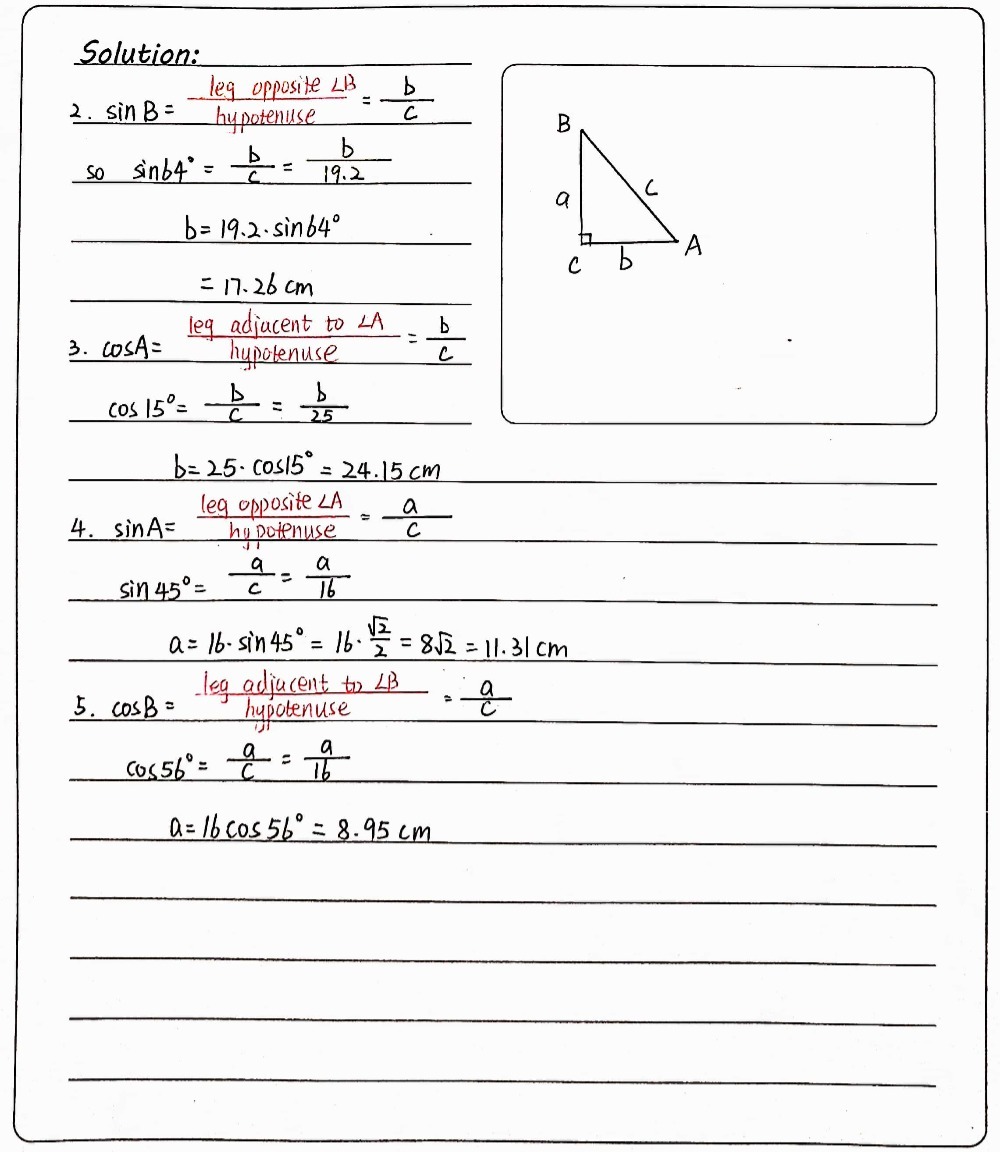 Solution:
2. sin B = leg opposite ∠B / hypotenuse = b / c
so sin64° = b / c = b / 19.2
b = 19.2 · sin64°
= 17.26 cm
3. cosA = leg adjacent to ∠A / hypotenuse = b / c
cos 15° = b / c = b / 25
b = 25 · cos15° = 24.15 cm
4. sinA = leg opposite ∠A / hypotenuse = a / c
sin 45° = a / c = a / 16
a = 16 · sin45° = 16 · √2 / 2 = 8√2 = 11.31 cm
5. cosB = leg adjacent to ∠B / hypotenuse = a / c
cos56° = a / c = a / 16
a = 16 cos 56° = 8.95 cm
B
a
c
C
b
A